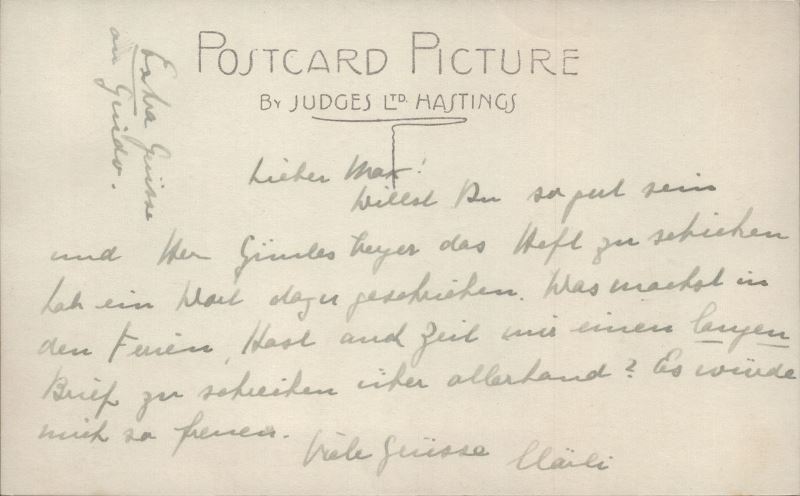 POSTCARD PICTURE
BY JUDGES LTD. HASTINGS
Extra Grüsse
an Guido.
Lieber Max!
Willst Du so gut sein
und Her das Heft zu schicken
hab ein Wort dazu geschrieben. Was machst in
den Ferien, Hast auch Zeit mir einen langen
Brief zu schreiben über allerhand? Es würde
mich so freuen.
Viele Grüsse Märli